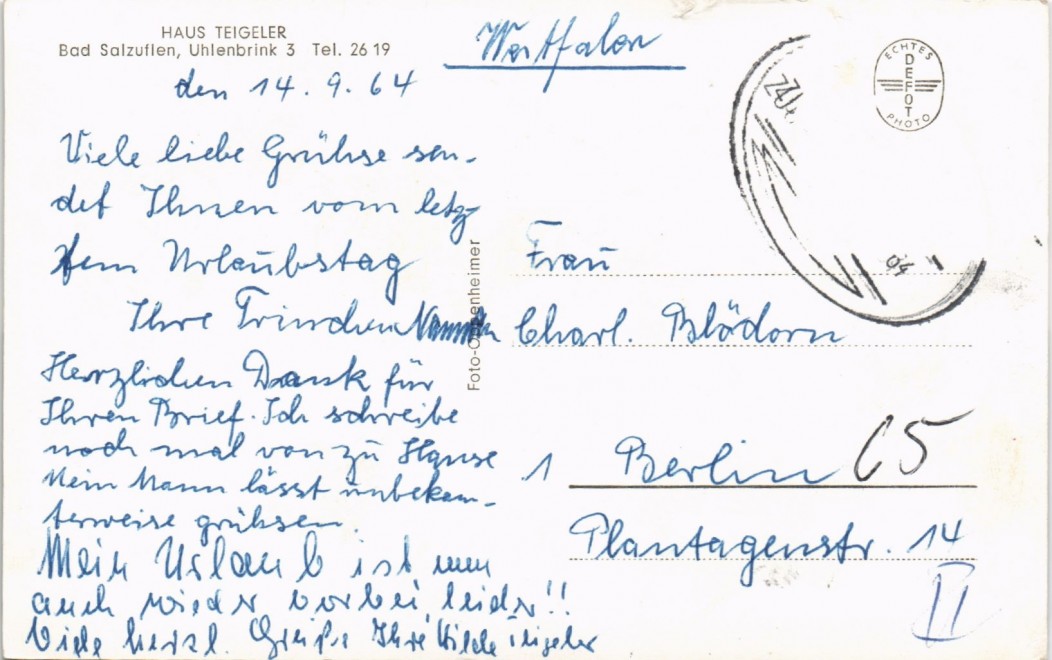 HAUS TEIGELER
Bad Salzuflen, Uhlenbrink 3 Tel. 26 19
Westfalen
den 14. 9. 64
Viele liebe Grühse sen-
det Ihnen vom letz-
tem Urlaubstag
Ihre Trinchen
Herzlichen Dank für
Ihren Brief. Ich schreibe
noch mal von zu Hause
Mein Mann lässt unbeken-
terweise grühsen.
Mein Urlaub ist nun
auch wieder vorbei, leider!!
Viele herzl. Grüße Ihre Hilde Teigeler
Foto-Oppenheimer
ECHTES
DEFOT
PHOTO
Frau
Charl. Blödorn
1 Berlin 65
Plantagenstr. 14
II